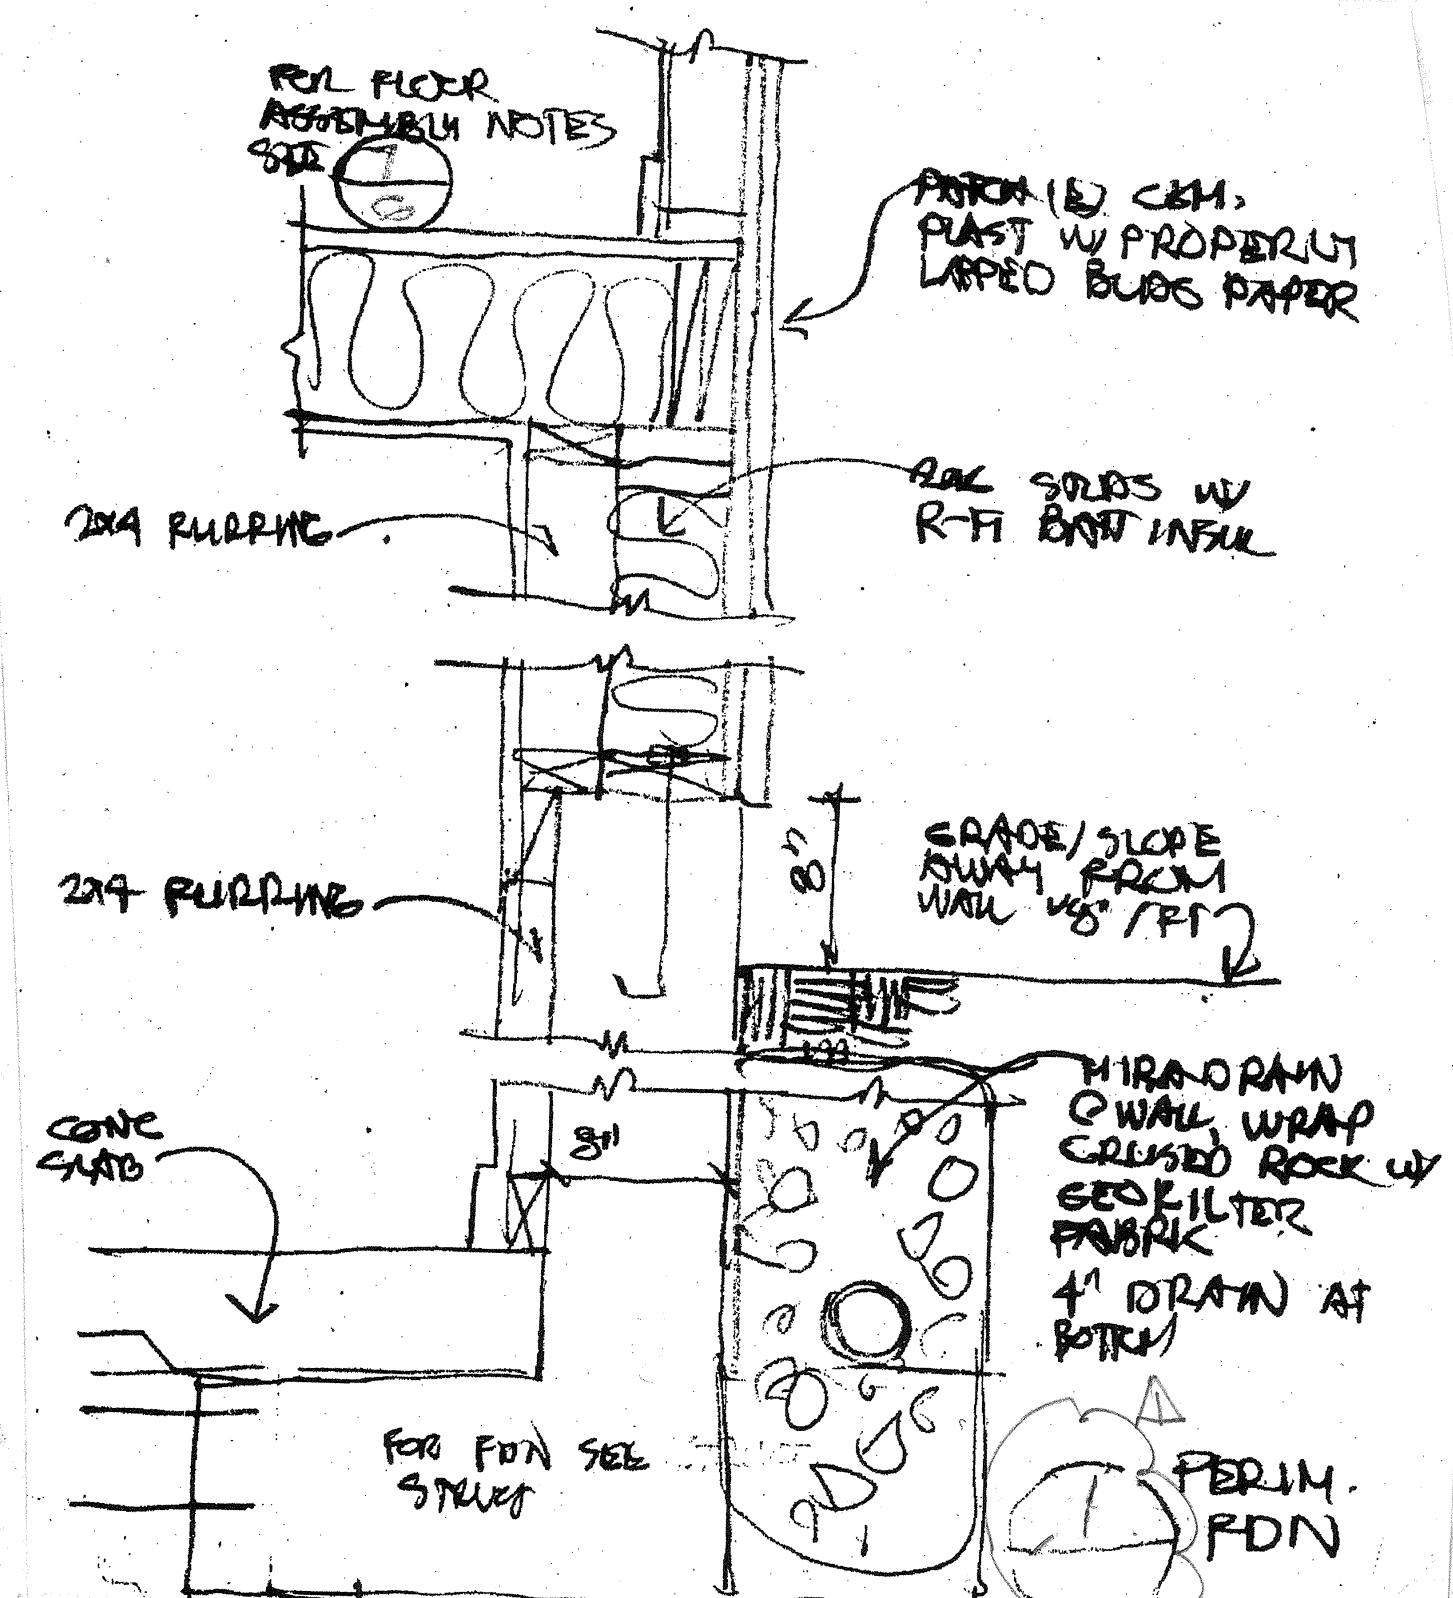 FOR FLOOR
ASSEMBLY NOTES
SEE 7
8
PATCH (E) CEM.
PLAST W/ PROPERLY
LAPPED BLDG PAPER
2X4 FURRING
STUDS W/
BATT INSUL
8"
GRADE/SLOPE
AWAY FROM
WALL 1/8" / FT
2X4 FURRING
MIRADRAIN
@ WALL, WRAP
CRUSED ROCK W/
GEOFILTER
FABRIC
4" DRAIN AT
BOTTM
CONC
SLAB
8"
FOR FDN SEE
STRUC
1
PERIM.
FDN